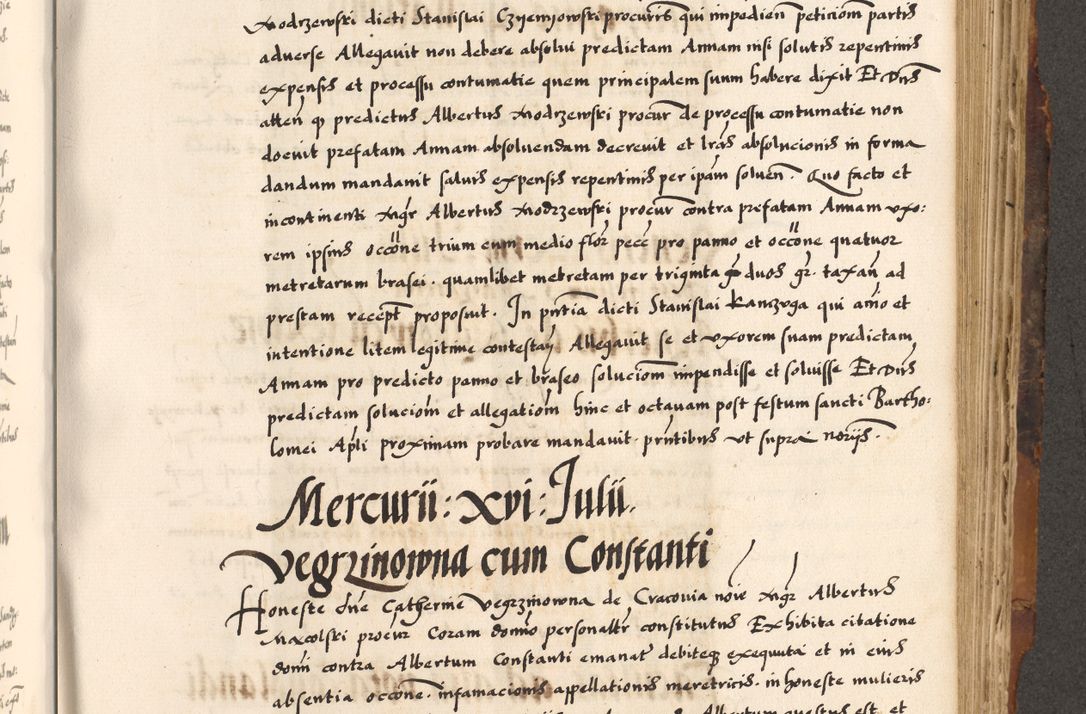 Modrzewski dicti Stanislai Czyemyowski procuris qui impedien peticiom partis
adverse Allegavit non debere absolui predictam Annam nisi solutis repentinis
expensis et processu contumatie quem principalem suum habere dixit Et Dns
atten qp predictus Albertus Modrzewski procur de processu contumatie non
docuit prefatam Annam absoluendam decreuit et lras absolucionis in forma
dandum mandauit saluis expensis repentinis per ipam soluen. Quo facto et
incontinenti Mgr Albertus Modrzewski procur contra prefatam Annam uxo:
rem ipsius occone trium cum medio flor pecc pro panno et occone quatuor
metretarum brasei. quamlibet metretam per triginta duos gr. taxan ad
prestam recept proposuit. In pntia dicti Stanislai Kanczuga qui animo et
intentione litem legitime contestan Allegauit se et uxorem suam predictam
Annam pro predicto panno et braseo soluciom impendisse et soluisse Et Dns
predictam soluciom et allegatiom hinc et octauam post festum sancti Bartho:
lomei Apli proximam probare mandauit. pntibus ut supra noriis.
Mercurii: xvi: Julii.
Vegrzinowna cum Constanti
Honeste dne Catherine Vegrzinowna de Cracovia noie Mgr Albertus
Maxolski procur Coram domino personaltr constitutus Exhibita citatione
domi contra Albertum Constanti emanat debiteque exequuta et in eius
absentia occone. infamacionis appellationis meretricis. in honeste mulieris
Albertum questus est et